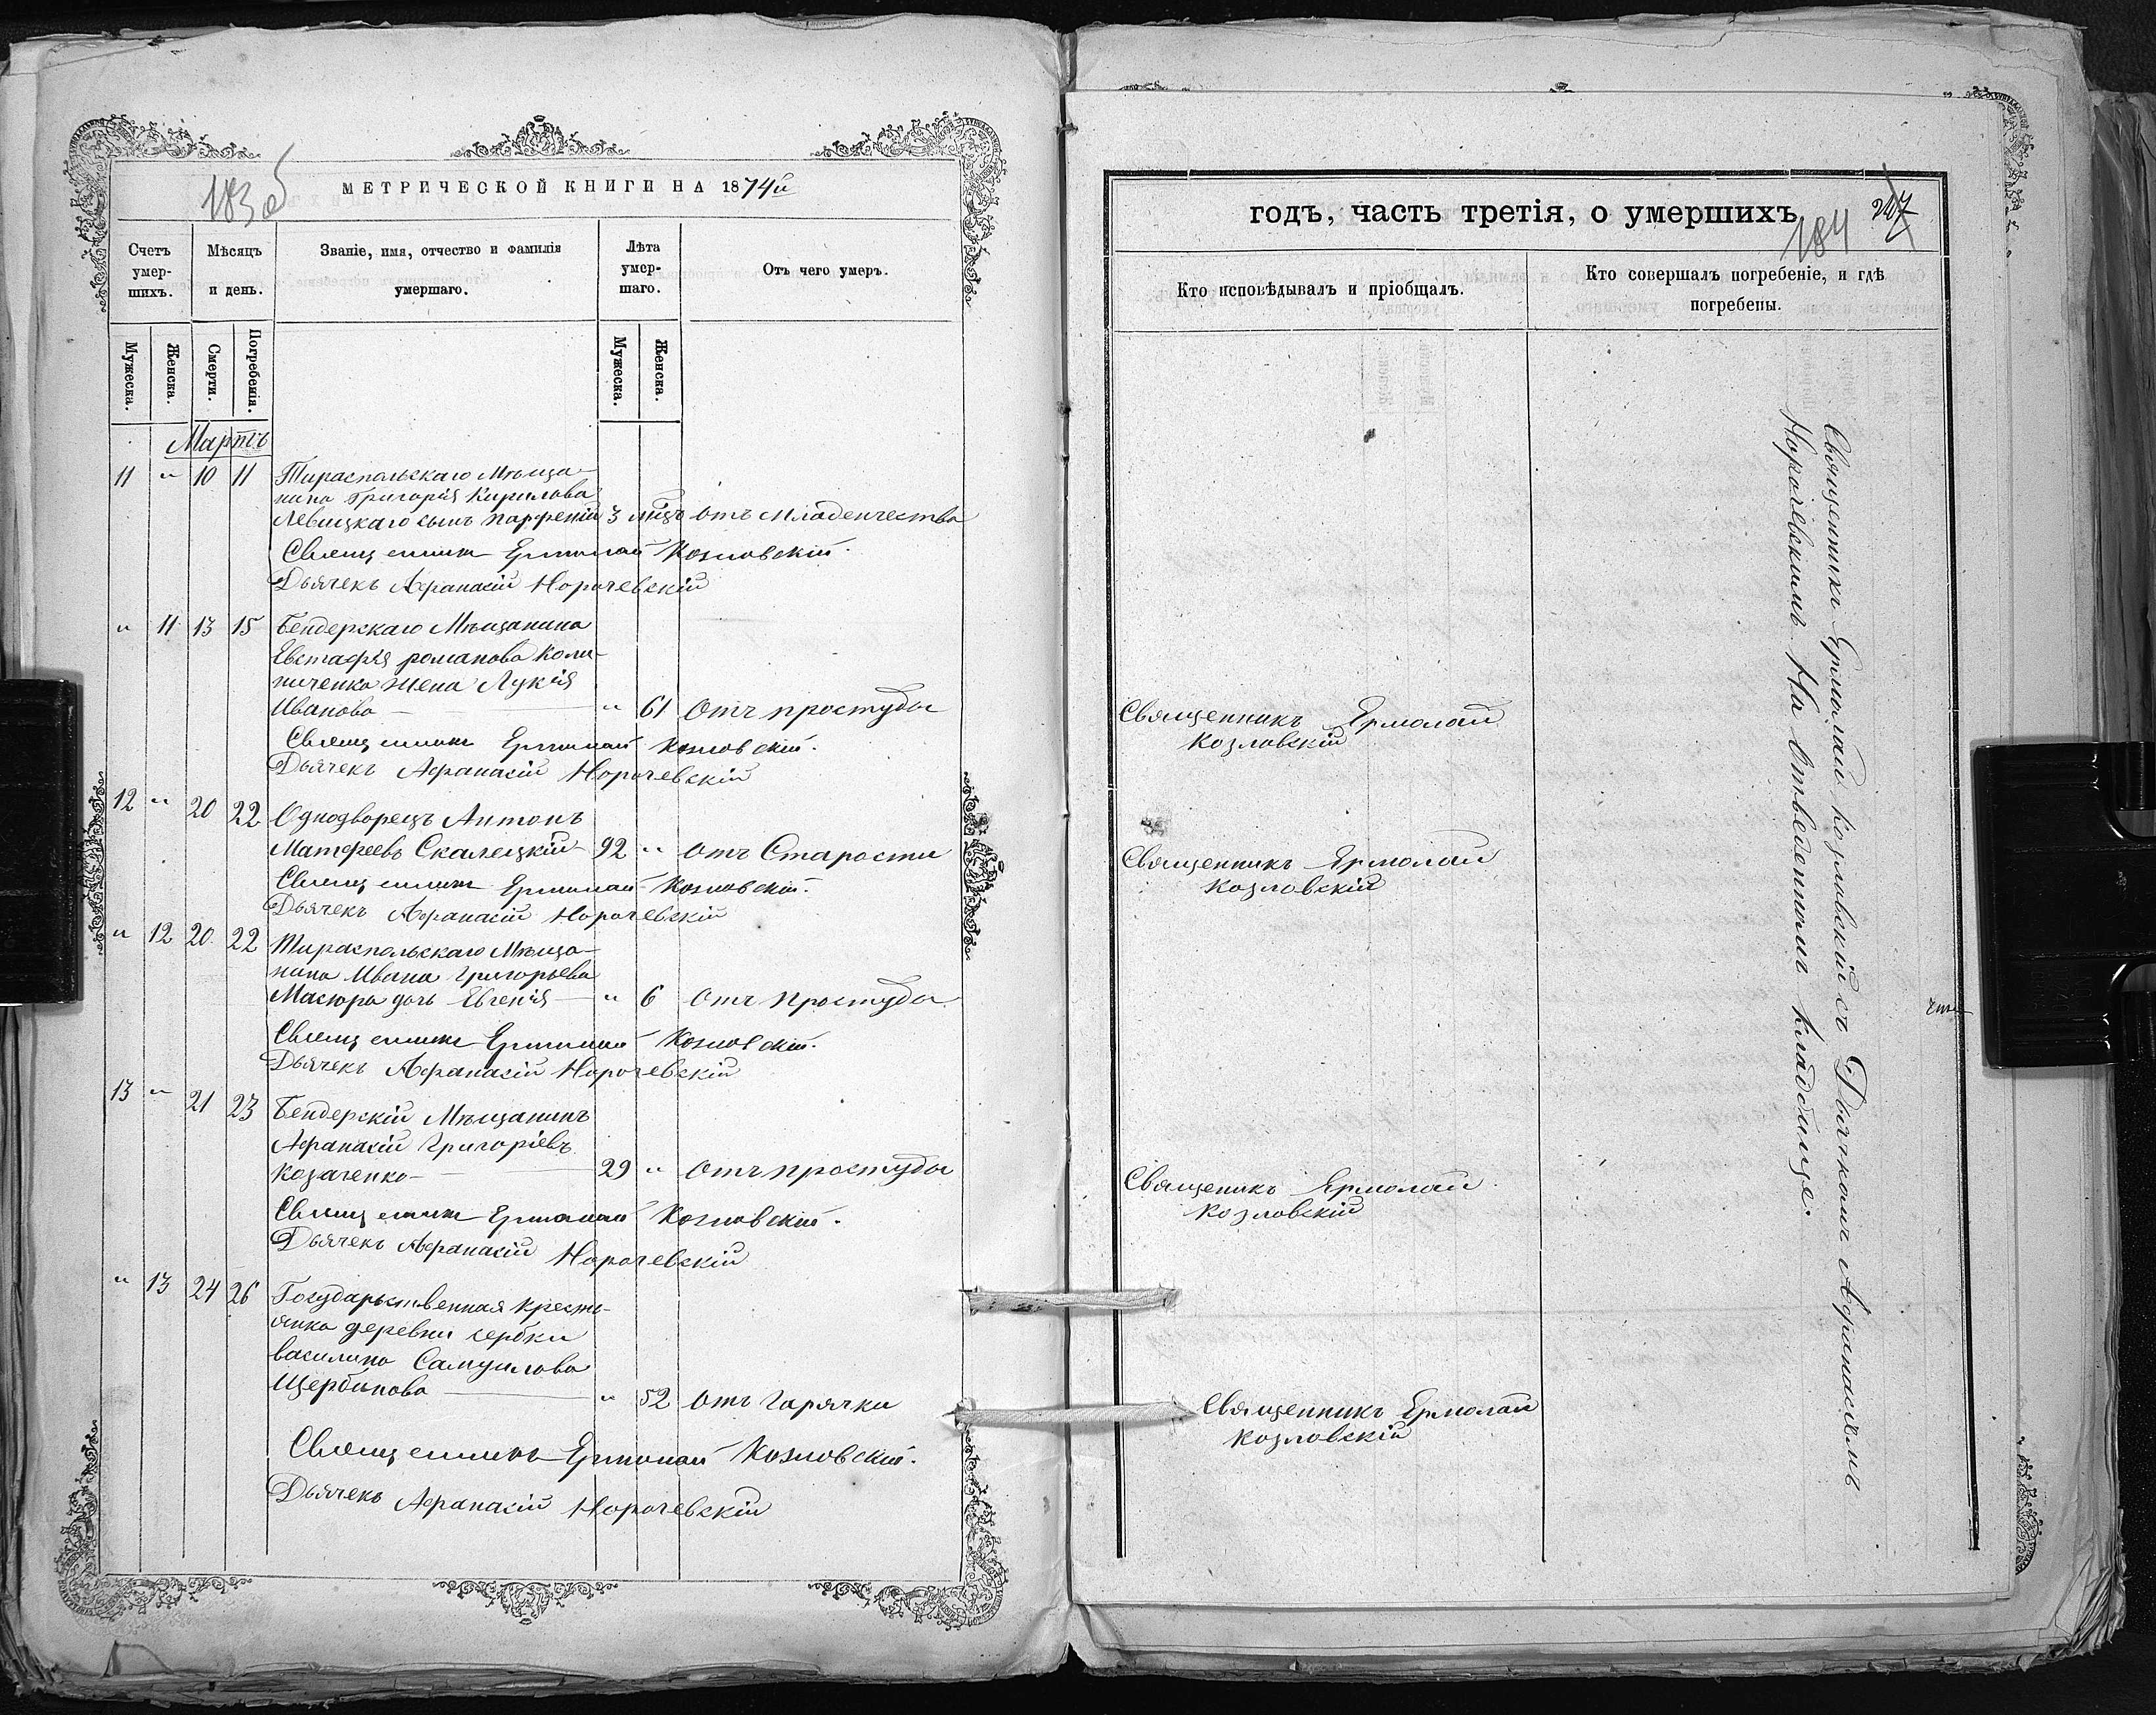 183 об
МЕТРИЧЕСКОЙ КНИГИ НА 1874й
Счетъ умер-шихъ.
Мѣсяцъ и день.
Званіе, имя, отчество и фамилія умершаго.
Лѣта умер-шаго.
Отъ чего умеръ.
Мужеска.
Женска.
Смерти.
Погребенія.
Мужеска.
Женска.
Мартъ
11 " 10 11 Тираспольскаго Мѣща-
нина Григорія Кирилова
Левицкаго сынъ Парфеній 3 мцъ отъ Младенчества
Священникъ Ермолай Козловскій.
Дьячекъ Афанасій Норочевскій
" 11 13 15 Бендерскаго Мѣщанина
Евстафія романова Коли-
ниченка жена Лукія
Иванова " 61 отъ простуды
Священникъ Ермолай Козловскій.
Дьячекъ Афанасій Норочевскій
12 " 20 22 Однодворецъ Антонъ
Матфеевъ Скалецкій 92 " отъ Старости
Священникъ Ермолай Козловскій.
Дьячекъ Афанасій Норочевскій
" 12 20 22 Тираспольскаго Мѣща-
нина Ивана Григорьева
Мазюра дочь Евгенія " 6 отъ простуды
Священникъ Ермолай Козловскій.
Дьячекъ Афанасій Норочевскій
13 " 21 23 Бендерскій Мѣщанинъ
Афанасій Григоріевъ
Козаченко 29 " отъ простуды
Священникъ Ермолай Козловскій.
Дьячекъ Афанасій Норочевскій
" 13 24 26 Государственная кресть-
янка деревни сербки
василина Самуилова
Щербинова " 52 отъ Горячки
Священникъ Ермолай Козловскій.
Дьячекъ Афанасій Норочевскій
годъ, часть третія, о умершихъ
184
Кто исповѣдывалъ и пріобщалъ.
Кто совершалъ погребеніе, и гдѣ погребены.
Священникъ Ермолай
Козловскій
Священникъ Ермолай
Козловскій
Священикъ Ермолай
Козловскій
Священникъ Ермолай
Козловскій
Священникъ Ермолай Козловскій съ Дьячкомъ Афанасіемъ
Норочевскимъ На Отведенномъ кладбище.